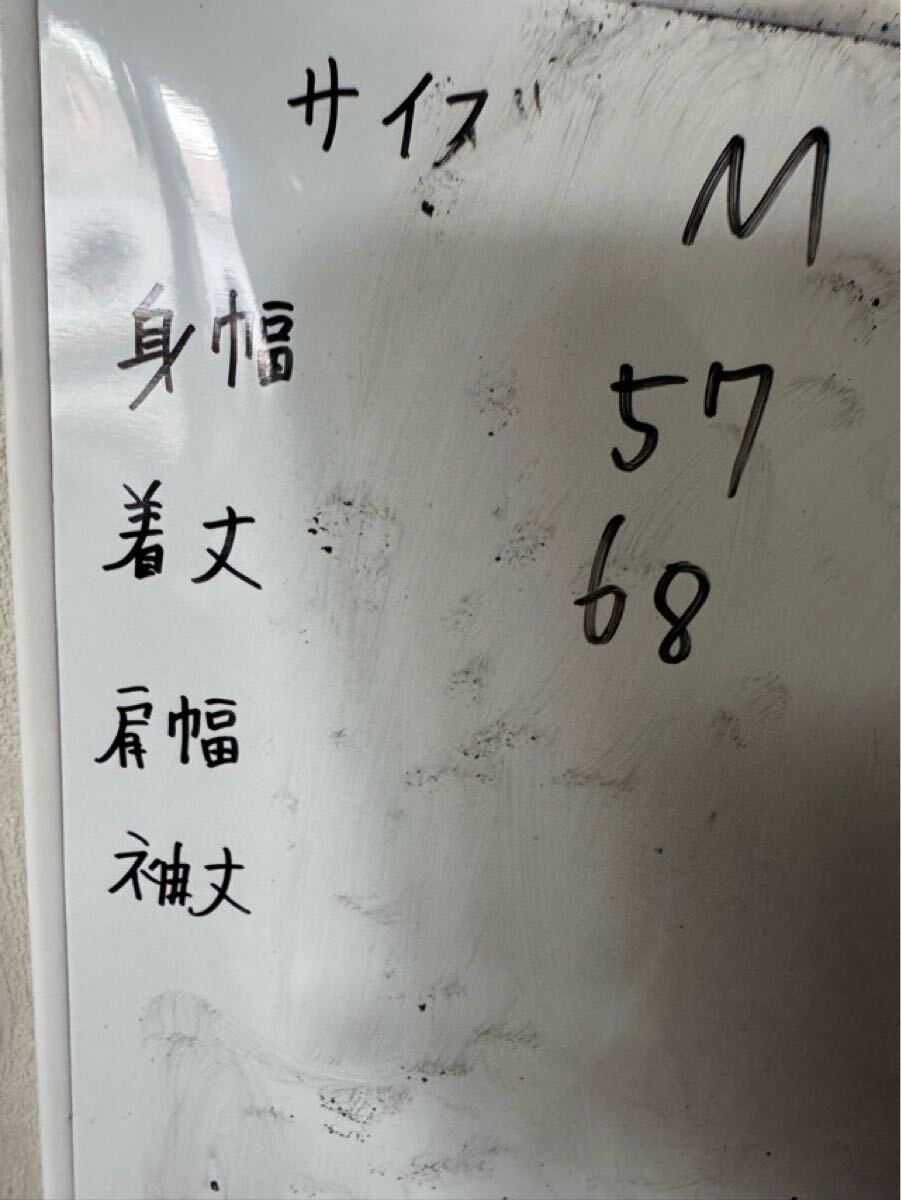 サイズ M
身幅 57
着丈 68
肩幅
袖丈